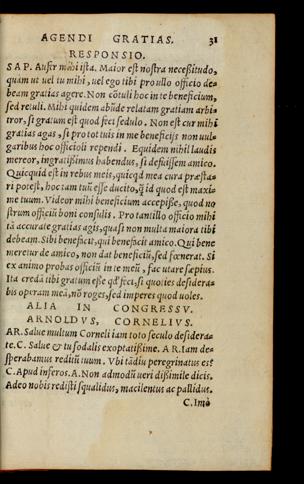 AGENDI GRATIAS. 31
RESPONSIO.
SAP. Aufer mihi ista. Maior est nostra necessitudo,
quàm ut uel tu mihi, uel ego tibi pro ullo officio de-
beam gratias agere. Non cōtuli hoc in te beneficium,
sed retuli. Mihi quidem abūde relatam gratiam arbi-
tror, si gratum est quod feci sedulo. Non est cur mihi
gratias agas, si pro tot tuis in me beneficijs non uul-
garibus hoc officioli rependi. Equidem nihil laudis
mereor, ingratissimus habendus, si defuissem amico.
Quicquid est in rebus meis, quicqd mea cura præsta-
ri potest, hoc tam tuū esse ducito, q̃ id quod est maxi-
me tuum. Videor mihi beneficium accepisse, quod no-
strum officiū boni consulis. Pro tantillo officio mihi
tā accurate gratias agis, quasi non multa maiora tibi
debeam. Sibi beneficit, qui beneficit amico. Qui bene
meretur de amico, non dat beneficiū, sed fœnerat. Si
ex animo probas officiū in te meū, fac utare sæpius.
Ita credā tibi gratum esse qd' feci, si quoties desidera-
bis operam meā, nō roges, sed imperes quod uoles.
ALIA IN CONGRESSV.
ARNOLDVS, CORNELIVS.
AR. Salue multum Corneli iam toto seculo desidera-
te. C. Salue & tu sodalis exoptatissime. AR. Iam de-
sperabamus reditū tuum. Vbi tādiu peregrinatus es?
C. Apud inferos. A. Non admodū ueri dissimile dicis.
Adeo nobis redisti squalidus, macilentus ac pallidus.
C. Imò